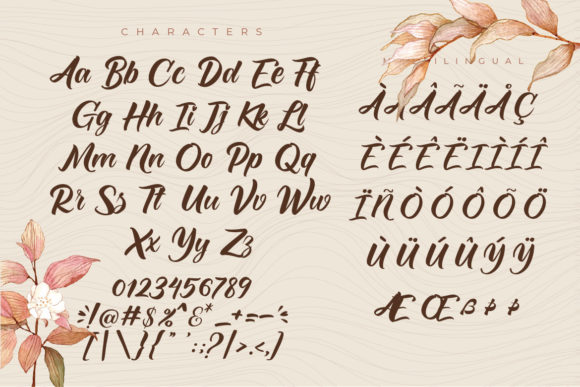 CHARACTERS
Aa Bb Cc Dd Ee Ff
Gg Hh Ii Jj Kk Ll
Mm Nn Oo Pp Qq
Rr Ss Tt Uu Vv Ww
Xx Yy Zz
0123456789
!@#$%^&*_+=-
[|\}{" ':;?|>.<,]
MULTILINGUAL
ÀÁÂÃÄÅÇ
ÈÉÊËÌÍÎ
ÏÑÒÓÔÕÖ
ÙÜÚÛÝŸ
ÆŒßÞþ